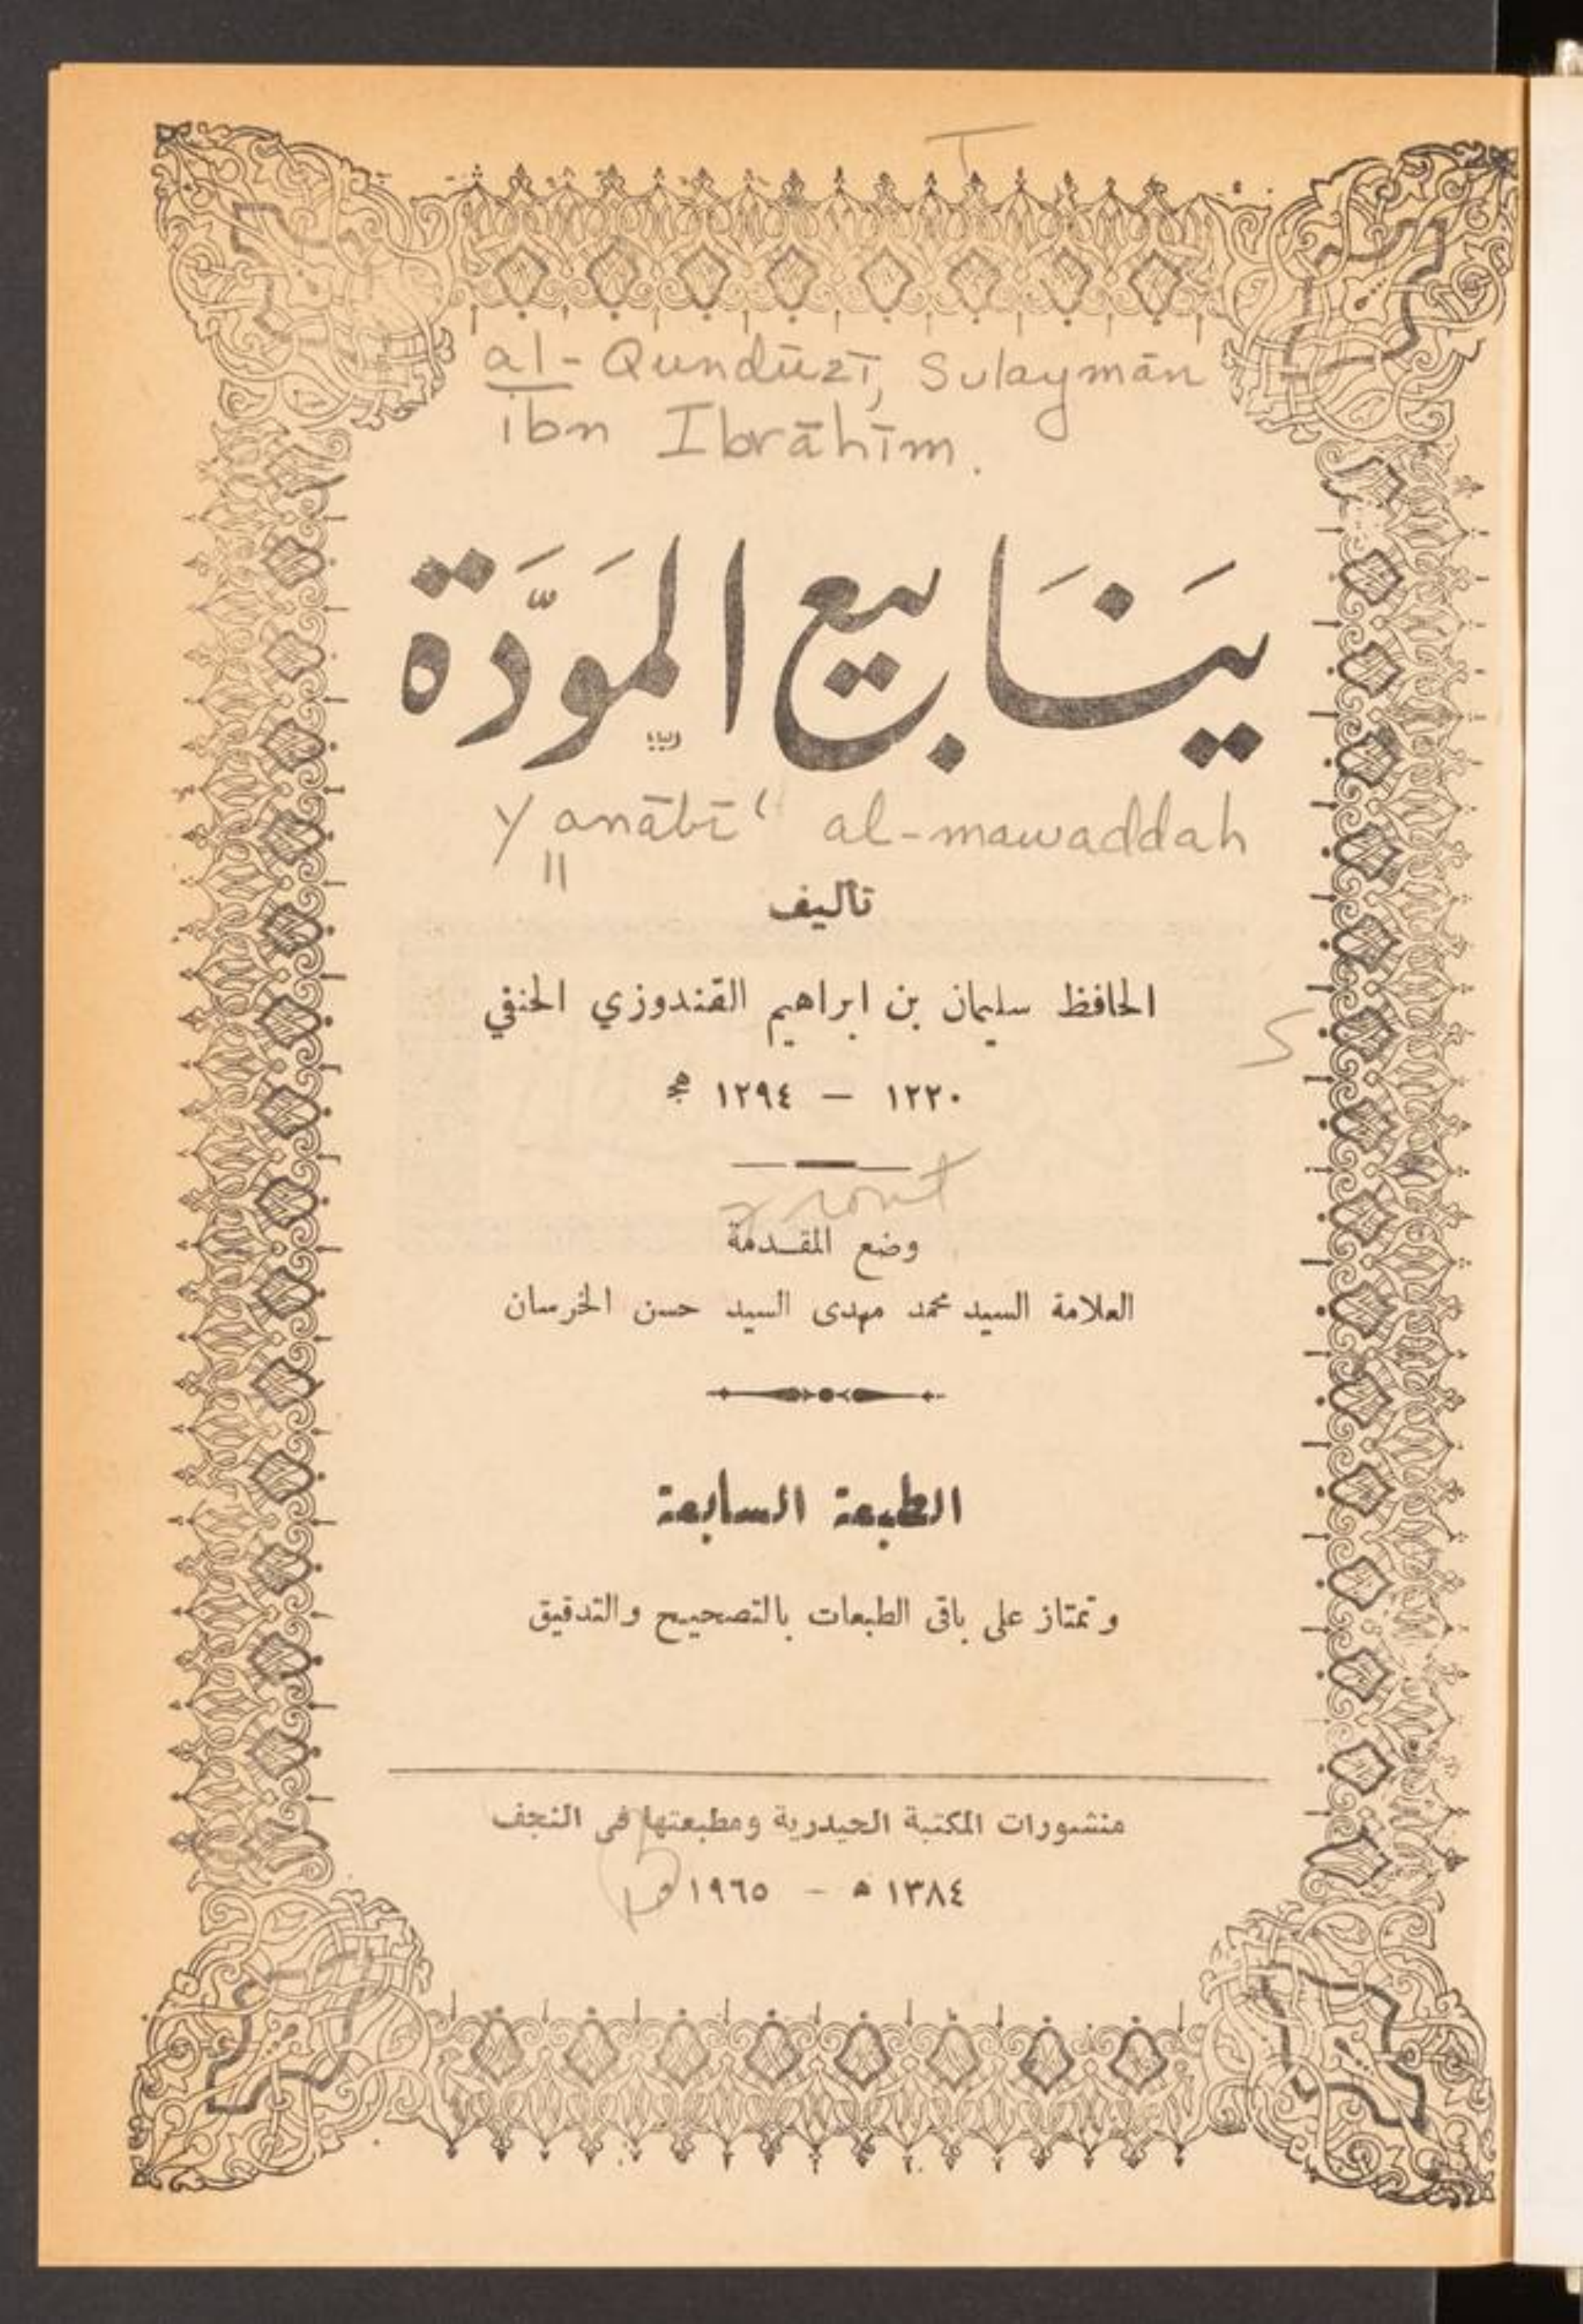 al-Qundūzī, Sulaymān
ibn Ibrāhīm.
يَنَابيع المَوَدَّة
Yanābīʿ al-mawaddah
تأليف
الحافظ سليمان بن ابراهيم القندوزي الحنفي
١٢٢٠ — ١٢٩٤ هج
وضع المقدمة
العلامة السيد محمد مهدى السيد حسن الخرسان
الطبعة السابعة
وتمتاز على باقى الطبعات بالتصحيح والتدقيق
منشورات المكتبة الحيدرية ومطبعتها فى النجف
١٣٨٤ ه - ١٩٦٥ م